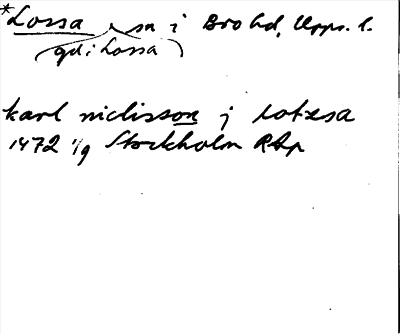 *Lossa, sn i Bro hd, Upps. l.
(gd i Lossa)
karl niclisson j lotzsa
1472 1/9 Stockholm RAp